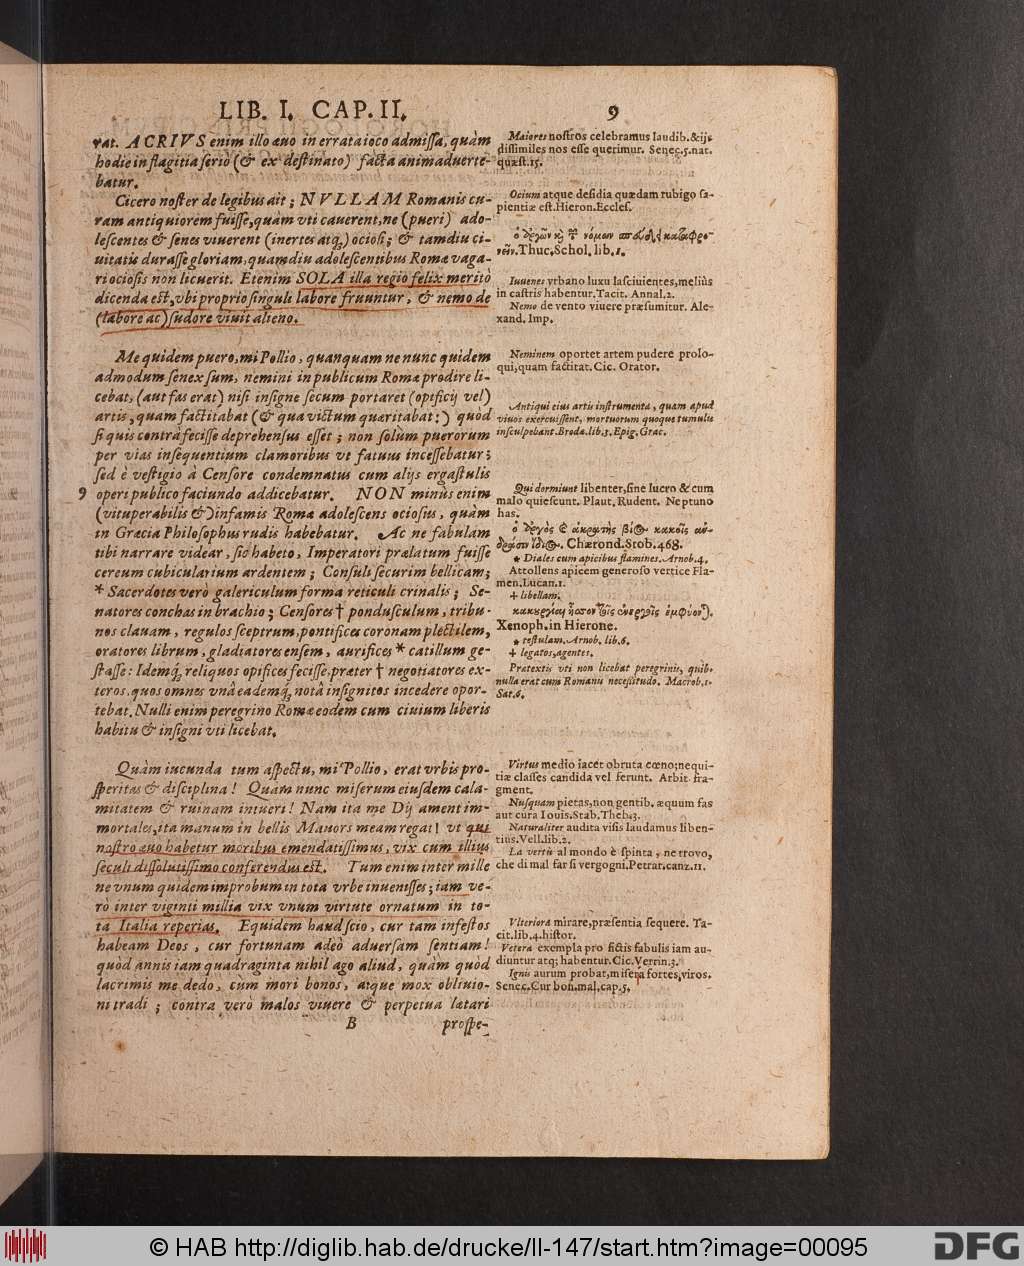 LIB. I. CAP. II. 9
rat. ACRIVS enim illo æuo in errata ioco admissa, quàm
hodie in flagitia seriò (& ex destinato) facta animaduerte-
batur.
Cicero noster de legibus ait; NVLLAM Romanis cu-
ram antiquiorem fuisse, quàm vti cauerent, ne (pueri) ado-
lescentes & senes viuerent (inertes atq;) ociosi; & tamdiu ci-
uitatis durasse gloriam, quamdiu adolescentibus Romæ vaga-
ri ociosis non licuerit. Etenim SOLA illa regio felix meritò
dicenda est, vbi proprio singuli labore fruuntur, & nemo de
(labore ac) sudore viuit alieno.
Me quidem puero, mi Pollio, quanquam ne nunc quidem
admodum senex sum, nemini in publicum Romæ prodire li-
cebat, (aut fas erat) nisi insigne secum portaret (opificij vel)
artis, quam factitabat (& qua victum quæritabat:) quòd
si quis contrà fecisse deprehensus esset; non solùm puerorum
per vias insequentium clamoribus vt fatuus incessebatur;
sed è vestigio à Censore condemnatus cum alijs ergastulis
9 operi publico faciundo addicebatur. NON minùs enim
(vituperabilis &) infamis Romæ adolescens ociosus, quàm
in Græcia Philosophus rudis habebatur. Ac ne fabulam
tibi narrare videar, sic habeto, Imperatori prælatum fuisse
cereum cubicularium ardentem; Consuli securim bellicam;
* Sacerdotes verò galericulum forma reticuli crinalis; Se-
natores conchas in brachio; Censores † pondusculum, tribu-
nos clauam, regulos sceptrum, pontifices coronam plectilem,
oratores librum, gladiatores ensem, aurifices * catillum ge-
stasse: Idemq; reliquos opifices fecisse, præter † negotiatores ex-
teros, quos omnes vnâ eademq; notâ insignitos incedere opor-
tebat. Nulli enim peregrino Romæ eodem cum ciuium liberis
habitu & insigni vti licebat.
Quàm iucunda tum aspectu, mi Pollio, erat vrbis pro-
speritas & disciplina! Quàm nunc miserum eiusdem cala-
mitatem & ruinam intueri! Nam ita me Dij ament im-
mortales, ita manum in bellis Mauors meam regat! vt qui
nostro æuo habetur moribus emendatissimus, vix cum illius
seculi dissolutissimo conferendus est. Tum enim inter mille
ne vnum quidem improbum in tota vrbe inuenisses; iam ve-
rò inter viginti millia vix vnum virtute ornatum in to-
ta Italia reperias. Equidem haud scio, cur tam infestos
habeam Deos, cur fortunam adeò aduersam sentiam!
quòd annis iam quadraginta nihil ago aliud, quàm quòd
lacrimis me dedo, cum mori bonos, atque mox obliuio-
ni tradi; contra verò malos viuere & perpetua lætari
B prospe-
Maiores nostros celebramus laudib. & ijs
dissimiles nos esse querimur. Senec. 5. nat.
quæst. 15.
Ocium atque desidia quædam rubigo sa-
pientiæ est. Hieron. Eccles.
Thuc. Schol. lib. 1.
Iuuenes vrbano luxu lasciuientes, meliùs
in castris habentur. Tacit. Annal. 2.
Nemo de vento viuere præsumitur. Ale-
xand. Imp.
Neminem oportet artem pudere prolo-
qui, quam factitat. Cic. Orator.
Antiqui eius artis instrumenta, quam apud
viuos exercuissent, mortuorum quoque tumulis
insculpebant. Brodæ. lib. 3. Epig. Græc.
Qui dormiunt libenter, sine lucro & cum
malo quiescunt. Plaut. Rudent. Neptuno
has.
Chærond. Stob. 468.
* Diales cum apicibus flamines. Arnob. 4.
Attollens apicem generoso vertice Fla-
men. Lucan. 1.
† libellam.
Xenoph. in Hierone.
* testulam. Arnob. lib. 6.
† legatos, agentes.
Prætextis vti non licebat peregrinis, quib.
nulla erat cum Romanis necessitudo. Macrob. 1.
Sat. 6.
Virtus medio iacet obruta cœno; nequi-
tiæ classes candida vel ferunt. Arbit. fra-
gment.
Nusquam pietas, non gentib. æquum fas
aut cura Iouis. Stab. Theb. 3.
Naturaliter audita visis laudamus liben-
tius. Vell. lib. 2.
La vertù al mondo è spinta, ne trovo,
che di mal far si vergogni. Petrar. canz. 11.
Vlteriora mirare, præsentia sequere. Ta-
cit. lib. 4. histor.
Vetera exempla pro fictis fabulis iam au-
diuntur atq; habentur. Cic. Verrin. 3.
Ignis aurum probat, misera fortes, viros.
Senec. Cur bon. mal. cap. 5.
© HAB http://diglib.hab.de/drucke/ll-147/start.htm?image=00095
DFG